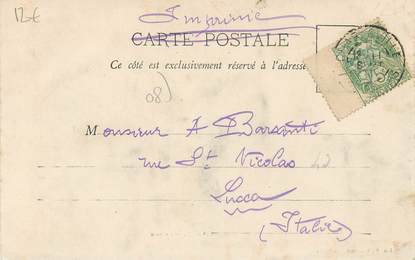 12€
Imprimé
CARTE POSTALE
Ce côté est exclusivement réservé à l'adresse
08)
Monsieur A Barsanti
rue St. Nicolas
Lucca
(Italie)